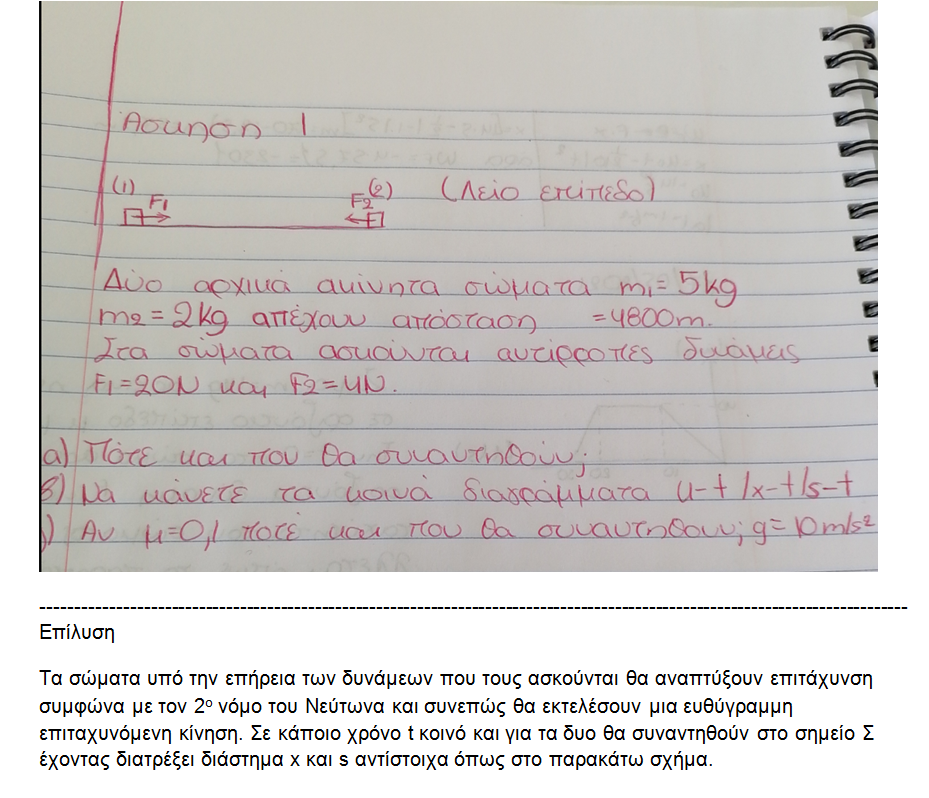 Άσκηση 1
(1) (2) (Λείο επίπεδο)
F1 F2
Δύο αρχικά ακίνητα σώματα m1=5kg
m2=2kg απέχουν απόσταση =4800m.
Στα σώματα ασκούνται αντίρροπες δυνάμεις
F1=20N και F2=4N.
α) Πότε και που θα συναντηθούν;
β) Να κάνετε τα κοινά διαγράμματα υ-t /x-t/s-t
) Αν μ=0,1 ποτέ και που θα συναντηθουν; g=10m/s²
Επίλυση
Τα σώματα υπό την επήρεια των δυνάμεων που τους ασκούνται θα αναπτύξουν επιτάχυνση
συμφώνα με τον 2ο νόμο του Νεύτωνα και συνεπώς θα εκτελέσουν μια ευθύγραμμη
επιταχυνόμενη κίνηση. Σε κάποιο χρόνο t κοινό και για τα δυο θα συναντηθούν στο σημείο Σ
έχοντας διατρέξει διάστημα x και s αντίστοιχα όπως στο παρακάτω σχήμα.